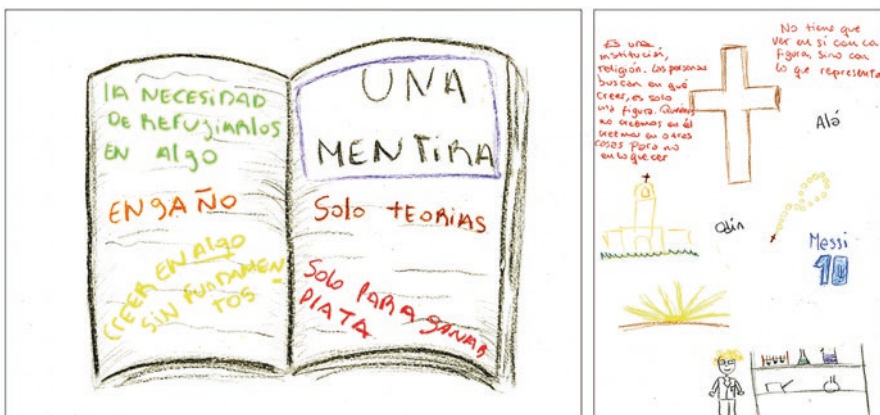 LA NECESIDAD
DE REFUGIARLOS
EN Algo
ENGAÑO
CREER EN Algo
SIN FUNDAMEN-
TOS
UNA
MENTIRA
Solo TEORIAS
Solo PARA GANAR
PLATA
Es una
institución,
religión. Las personas
buscan en qué
creer, es solo
una figura. Quienes
no creemos en él
creemos en otras
cosas
en lo que
No tiene que
ver en si con la
figura, sino con
lo que representa
Alá
Odín
Messi
10